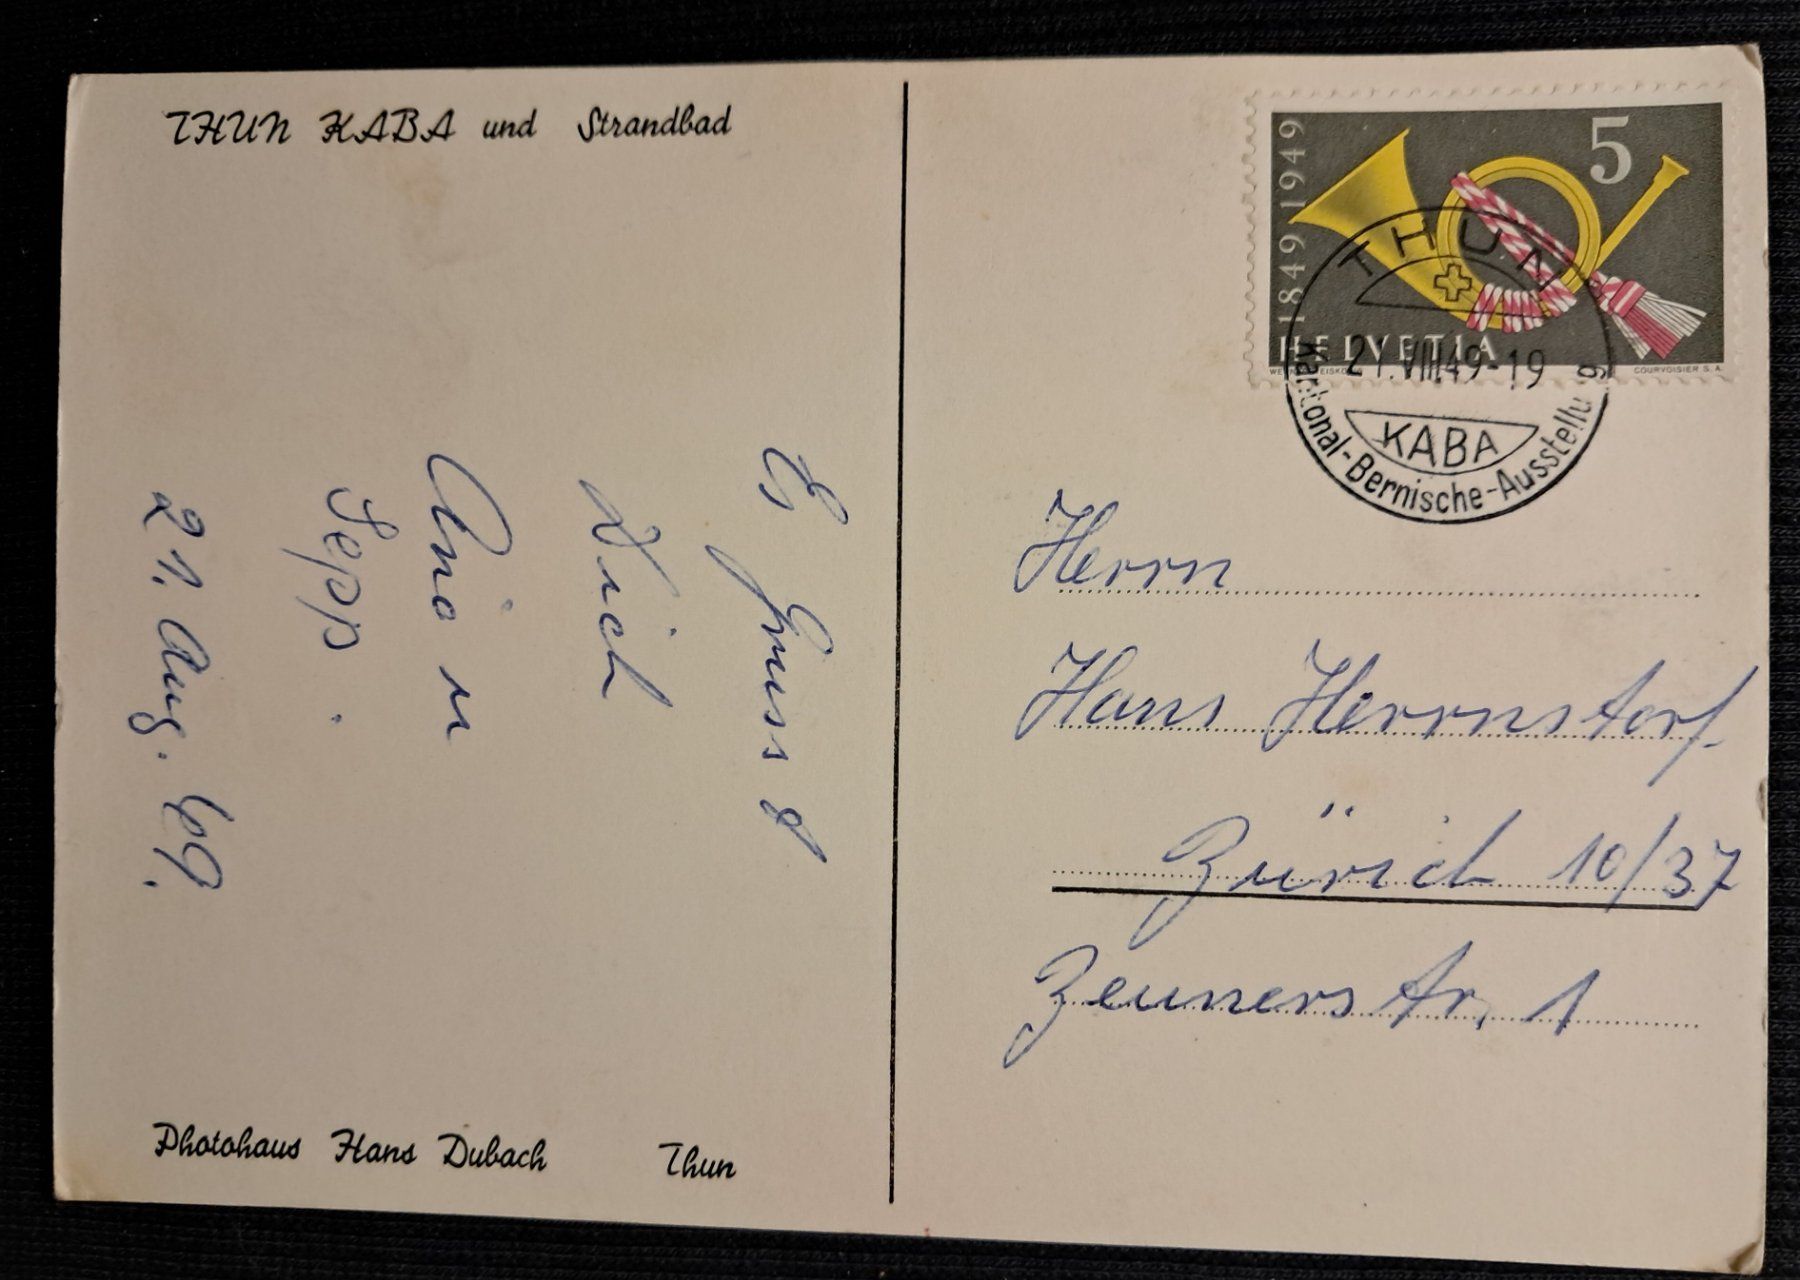 THUN KABA und Strandbad
Es grüsst
Dich
Sepp.
21. Aug. 49.
Photohaus Hans Dubach Thun
1849 1949
5
HELVETIA
COURVOISIER S.A.
THUN
21.VIII.49-19
KABA
Kantonal-Bernische-Ausstellung
Herrn
Hans Herrnstorf
Zürich 10/37
Zeunerstr. 1